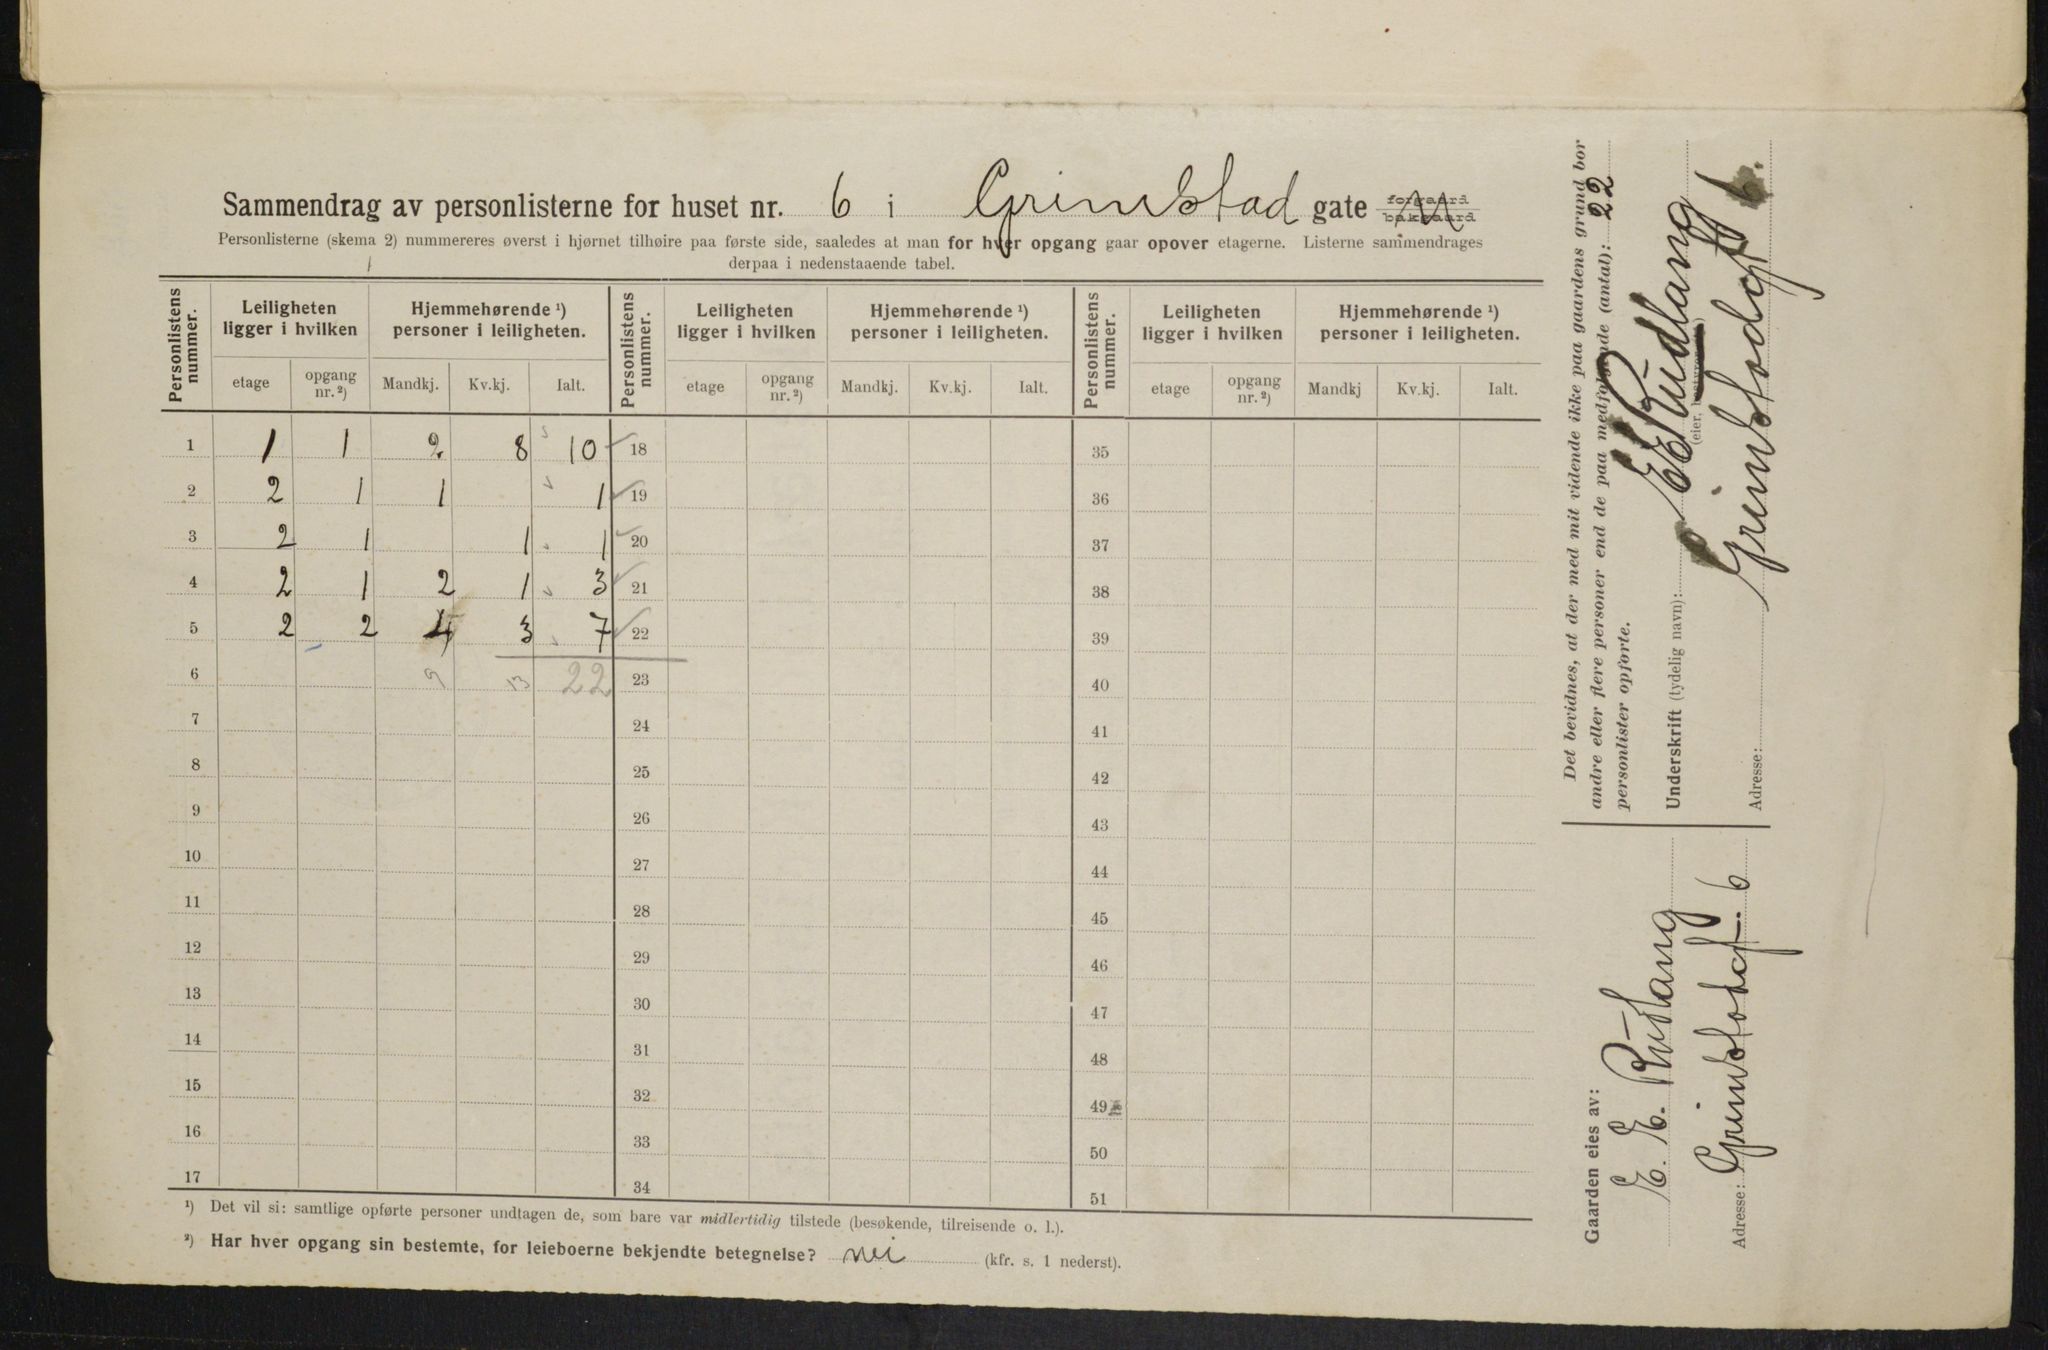 Sammendrag av personlisterne for huset nr. 6 i Grimstad gate forgaard bakgaard
Personlisterne (skema 2) nummereres øverst i hjørnet tilhøire paa første side, saaledes at man for hver opgang gaar opover etagerne. Listerne sammendrages
derpaa i nedenstaaende tabel.
Personlistens nummer. Leiligheten ligger i hvilken Hjemmehørende ¹) personer i leiligheten. Personlistens nummer. Leiligheten ligger i hvilken Hjemmehørende ¹) personer i leiligheten. Personlistens nummer. Leiligheten ligger i hvilken Hjemmehørende ¹) personer i leiligheten.
etage opgang nr. ²) Mandkj. Kv.kj. Ialt. etage opgang nr. ²) Mandkj. Kv.kj. Ialt. etage opgang nr. ²) Mandkj Kv.kj. Ialt.
1 1 1 2 8 10 18 35
2 2 1 1 1 19 36
3 2 1 1 1 20 37
4 2 1 2 1 3 21 38
5 2 2 4 3 7 22 39
6 9 13 22 23 40
7 24 41
8 25 42
9 26 43
10 27 44
11 28 45
12 29 46
13 30 47
14 31 48
15 32 49
16 33 50
17 34 51
¹) Det vil si: samtlige opførte personer undtagen de, som bare var midlertidig tilstede (besøkende, tilreisende o. l.).
²) Har hver opgang sin bestemte, for leieboerne bekjendte betegnelse? nei (kfr. s. 1 nederst).
Det bevidnes, at der med mit vidende ikke paa gaardens grund bor
andre eller flere personer end de paa medfølgende (antal): 22
personlister opførte.
Underskrift (tydelig navn): E E Rudlang
Adresse: Grimstadgt 6.
Gaarden eies av:
E. E. Rudlang
Adresse: Grimstadgt. 6